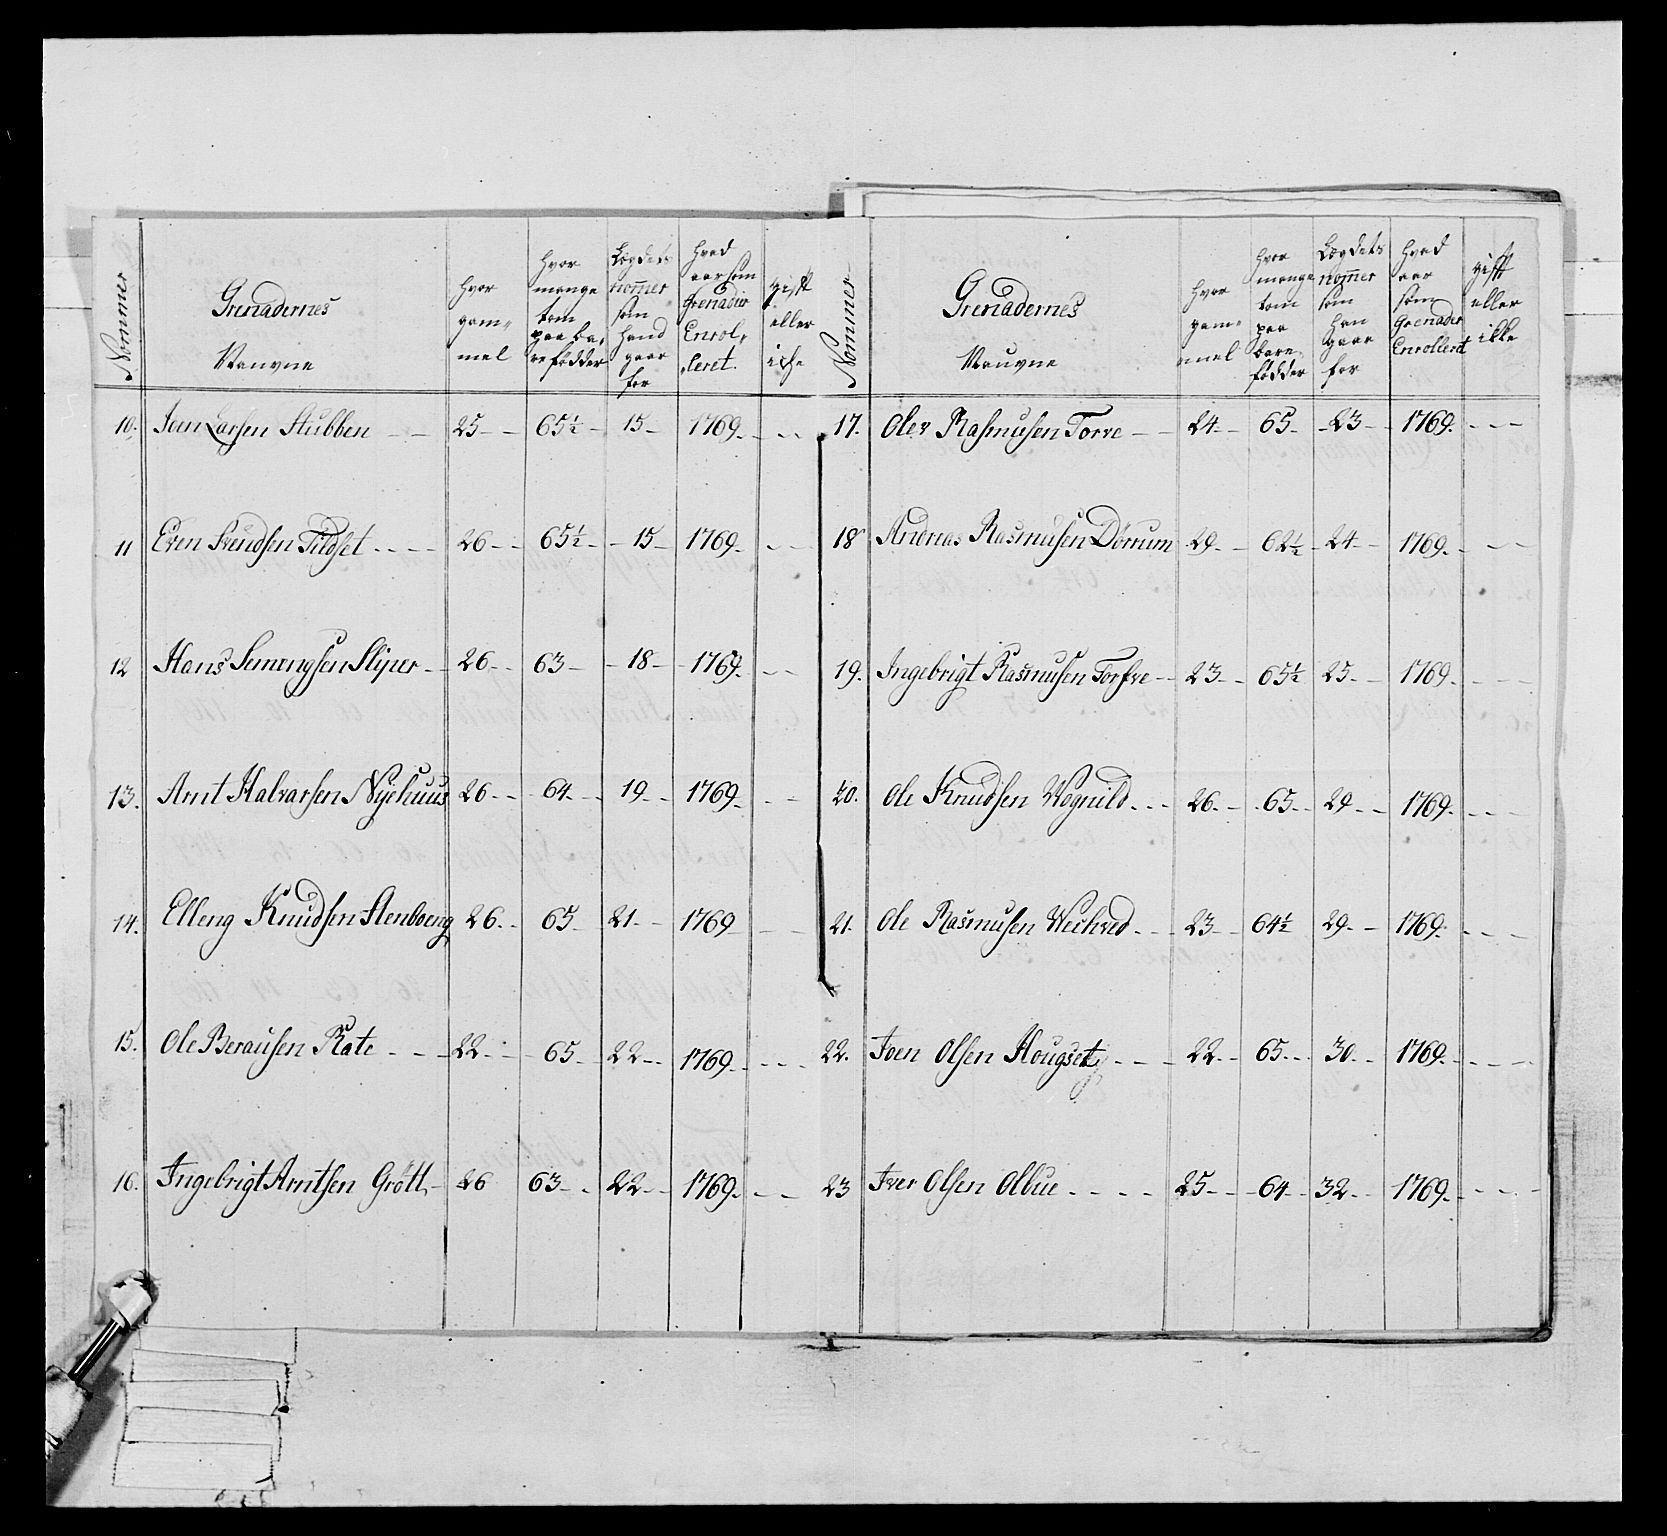 Nommer
Grenadernes
Navne
hvor
gam-
mel
hvor
mange
tom
paa ba,
refödder
Lægdets
nom̅er
som
hand
gaar
for
hvad
aar som
Grenadir
Enrol,
leret.
gift
eller
iche
10. Joen Larsen Stubben - - 25 - - 65½ - 15 - 1769. - - -
11 Even Svendsen Tildset . . - - 26 - - 65½ - - 15 - 1769. - - -
12 Hans Semengsen Sliper - - 26 - - 63 - - 18 - - 1769. - -
13. Arnt Halvarsen Nyehuus 26 - - 64 - - 19 - - 1769. - -
14. Elleng Knudsen Stenboeng 26 - - 65 21 - - 1769 - -
15. Ole Berausen Rate - - - 22 - - 65 - 22 - - 1769. - - -
16. Ingebrigt Arntsen Grött - 26 63 - - 22 - - 1769. - - -
Nommer
Grenadernes
Nauvne
hvor
gam-
mel
hvor
mange
tom
paa
bare
födder
Lægdets
nom̅er
som
han
gaar
for
hvad
aar
som
Grenader
Enrollerit
gift
eller
ikke
17. Oler Rasmusen Torve - - 24 - 65 - - 23 - - 1769. - - -
18 Andreas Rasmusen Dörrum 29 - - 62½ - 24 - - 1769. - - -
19. Ingebrigt Rasmusen Torfve - - 23 - - 65½ 25 - - 1769. - - -
20. Ole Knudsen Wognild . . . 26 - - 65 - - 29 - - 1769. - - -
21. Ole Rasmusen Weehved . . . 23 - - 64½ 29 - - 1769. - - -
22. Joen Olsen Hougset - - - 22 - - 65 - - 30 - - 1769. - - -
23 Iver Olsen Olbue - - - - 25 - - 64 - - 32 - - 1769. - - - -